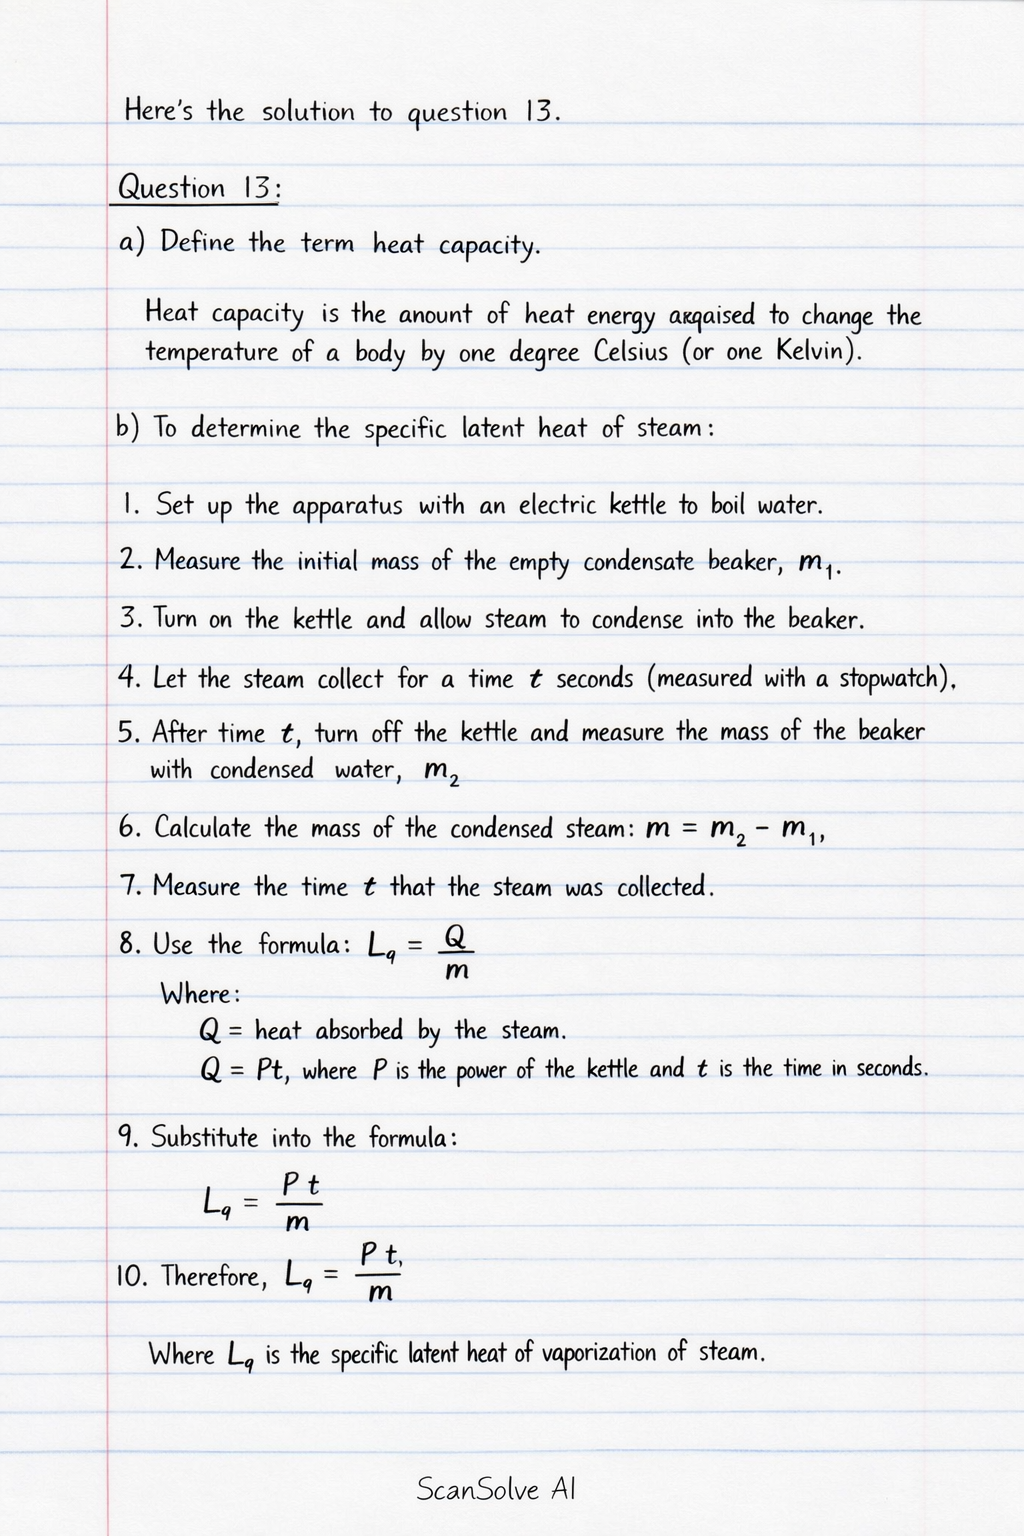 Here's the solution to question 13.
Question 13:
a) Define the term heat capacity.
Heat capacity is the anount of heat energy arqaised to change the
temperature of a body by one degree Celsius (or one Kelvin).
b) To determine the specific latent heat of steam:
1. Set up the apparatus with an electric kettle to boil water.
2. Measure the initial mass of the empty condensate beaker, m₁.
3. Turn on the kettle and allow steam to condense into the beaker.
4. Let the steam collect for a time t seconds (measured with a stopwatch),
5. After time t, turn off the kettle and measure the mass of the beaker
with condensed water, m₂
6. Calculate the mass of the condensed steam: m = m₂ - m₁,
7. Measure the time t that the steam was collected.
8. Use the formula: L_q = Q/m
Where:
Q = heat absorbed by the steam.
Q = Pt, where P is the power of the kettle and t is the time in seconds.
9. Substitute into the formula:
L_q = P t/m
10. Therefore, L_q = P t,/m
Where L_q is the specific latent heat of vaporization of steam.
ScanSolve AI